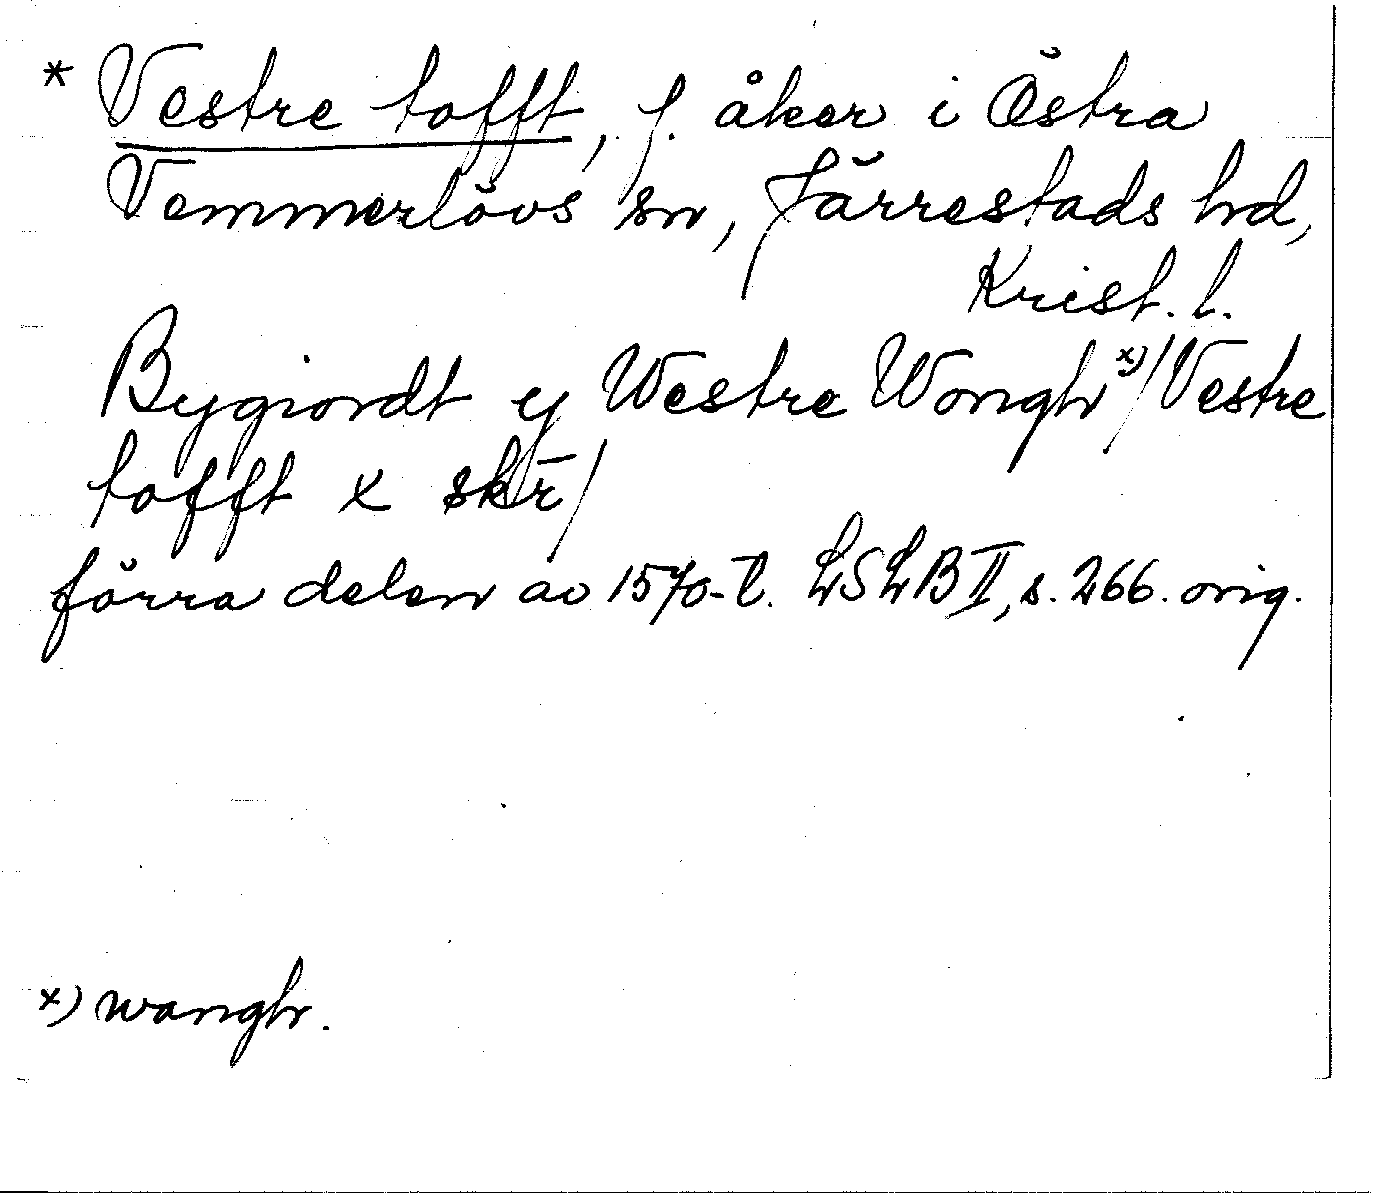 * Vestre tofft, f. åker i Östra
Vemmerlövs sn, Järrestads hd,
Krist. l.
Bygiordt y Westre Wongh x)/Vestre
tofft x skr̄/
förra delen av 1570-t. LSLB II, s. 266. orig.
x) wangh.